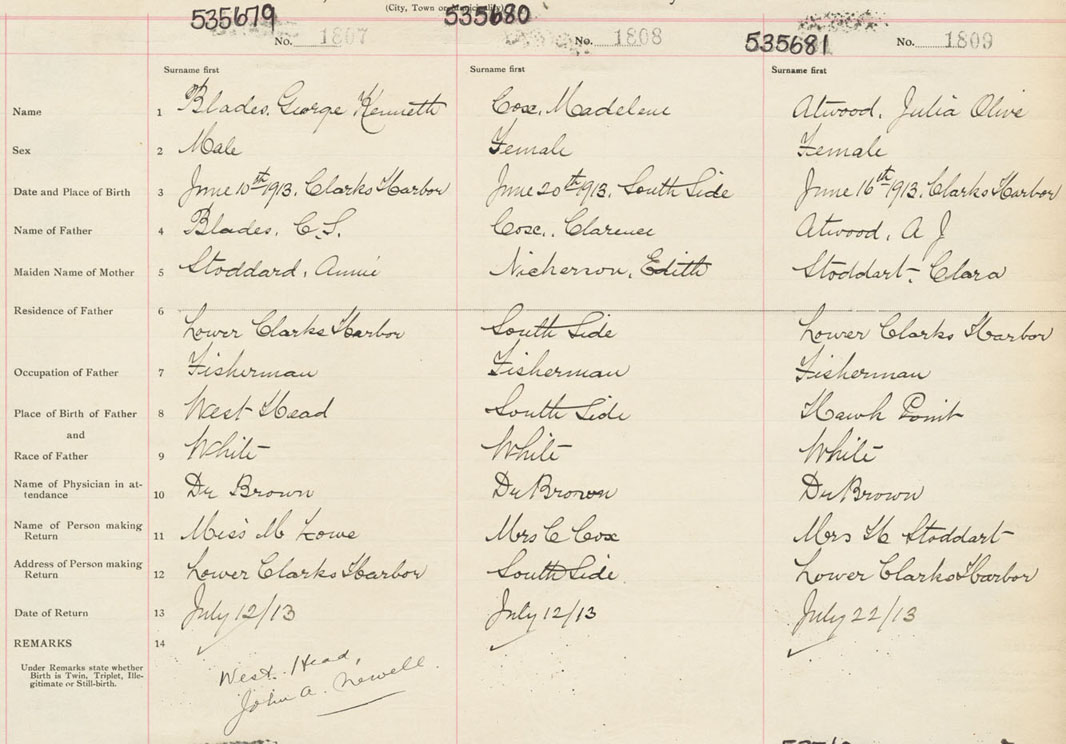 (City, Town or Municipality)
535679 535680
No. 1807 No. 1808 535681 No. 1809
Surname first Surname first Surname first
Name 1 Blades, George Kenneth Cox, Madelene Atwood, Julia Olive
Sex 2 Male Female Female
Date and Place of Birth 3 June 10th 1913, Clarks Harbor June 20th 1913, South Side June 16th 1913, Clarks Harbor
Name of Father 4 Blades, C.S. Cox, Clarence Atwood, A J
Maiden Name of Mother 5 Stoddard, Annie Nickerson, Edith Stoddart, Clara
Residence of Father 6
Lower Clarks Harbor South Side Lower Clarks Harbor
Occupation of Father 7 Fisherman Fisherman Fisherman
Place of Birth of Father 8 West Head South Side Hawk Point
and
Race of Father 9 White White White
Name of Physician in at-
tendance 10 Dr Brown Dr Brown Dr Brown
Name of Person making
Return 11 Miss M Lowe Mrs C Cox Mrs H Stoddart
Address of Person making
Return 12 Lower Clarks Harbor South Side Lower Clarks Harbor
Date of Return 13 July 12/13 July 12/13 July 22/13
REMARKS 14
Under Remarks state whether
Birth is Twin, Triplet, Ille-
gitimate or Still-birth.
West Head,
John A. Newell